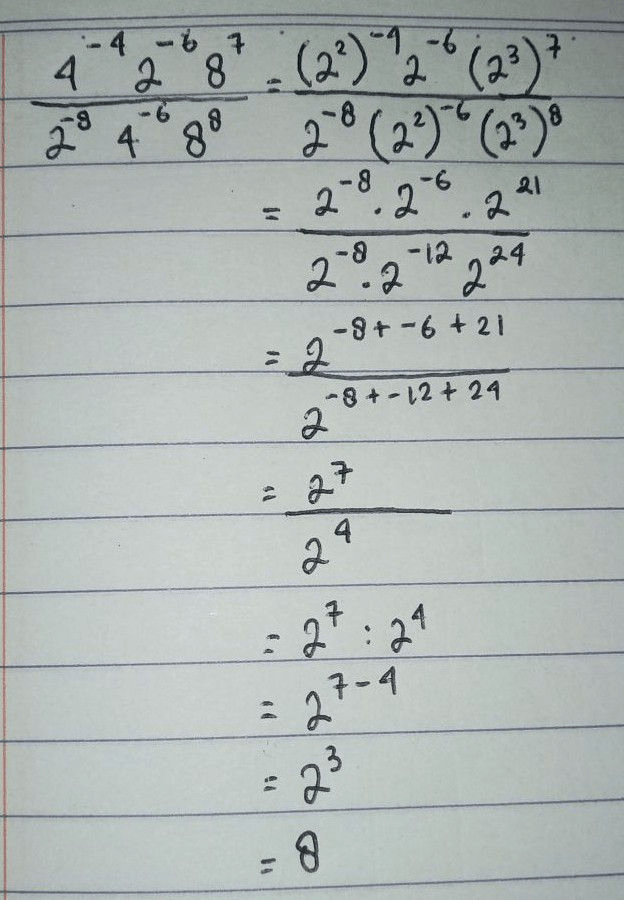 4⁻⁴ 2⁻⁶ 8⁷ / 2⁻⁸ 4⁻⁶ 8⁸ = (2²)⁻⁴ 2⁻⁶ (2³)⁷ / 2⁻⁸ (2²)⁻⁶ (2³)⁸
= 2⁻⁸ · 2⁻⁶ · 2²¹ / 2⁻⁸ · 2⁻¹² 2²⁴
= 2⁻⁸⁺⁻⁶⁺²¹ / 2⁻⁸⁺⁻¹²⁺²⁴
= 2⁷ / 2⁴
= 2⁷ : 2⁴
= 2⁷⁻⁴
= 2³
= 8